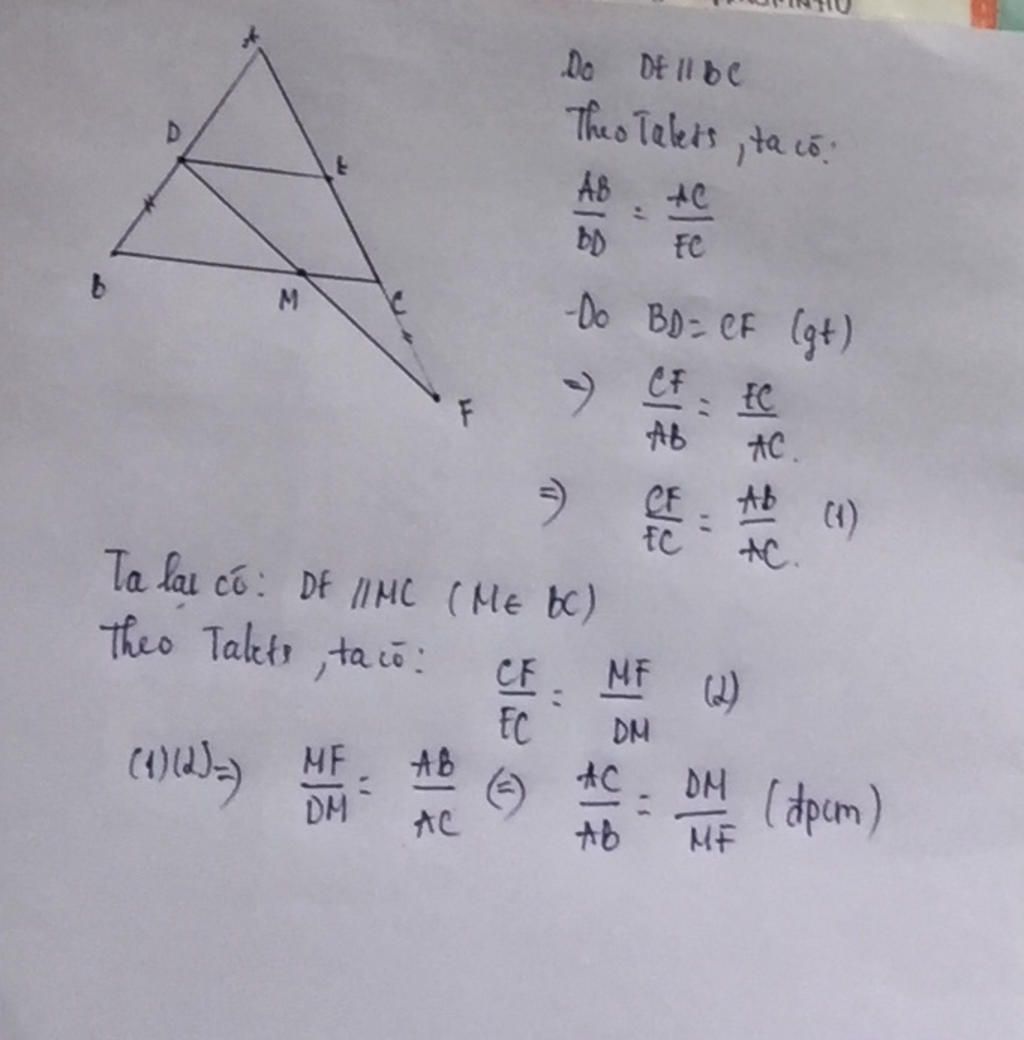 A
D
E
B
M
C
F
Do DE // BC
Theo Talets, ta có:
AB/BD = AC/EC
-Do BD = CF (gt)
=> CF/AB = EC/AC.
=> CF/EC = AB/AC. (1)
Ta lại có: DE // MC (M∈ BC)
Theo Talets, ta có: CF/EC = MF/DM (2)
(1)(2) => MF/DM = AB/AC (=) AC/AB = DM/MF (đpcm)